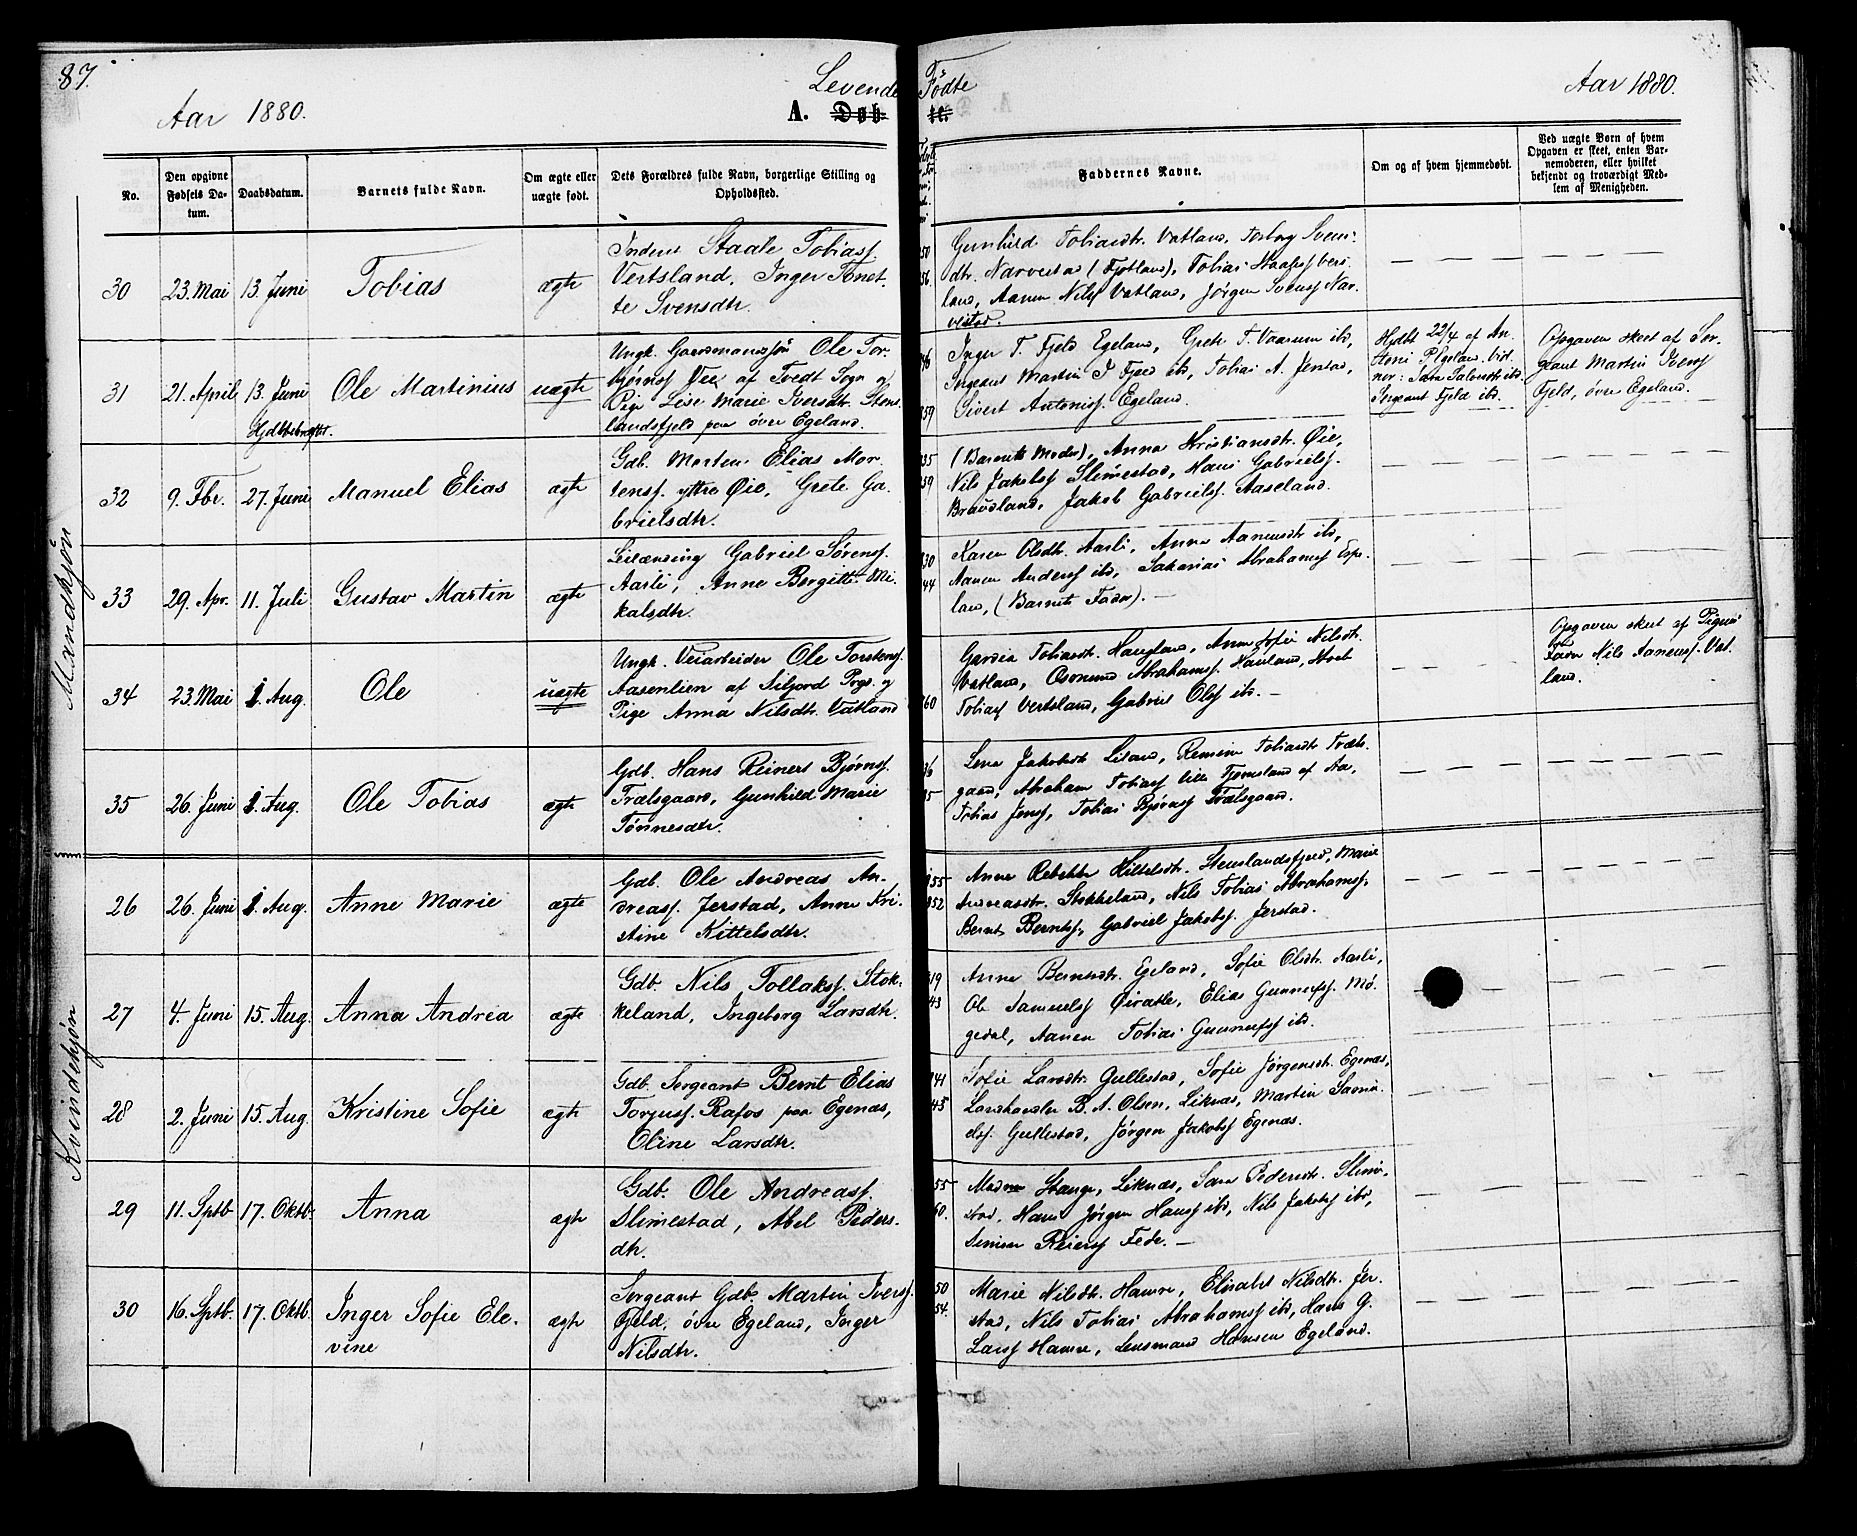 87.
Levende Fødte
Aar 1880.
A. Døb- te.
Aar 1880.
No.
Den opgivne Fødsels Da-tum.
Daabsdatum.
Barnets fulde Navn.
Om ægte eller uægte født.
Dets Forældres fulde Navn, borgerlige Stilling og Opholdssted.
Faddernes Navne.
Om og af hvem hjemmedøbt.
Ved uægte Børn af hvem Opgaven er skeet, enten Bar-nemoderen, eller hvilket bekjendt og troværdigt Med-lem af Menigheden.
Mandkjøn
30 23. Mai 13. Juni Tobias ægte
Inderst Staale Tobiass.
Vertsland, Inger Tonet-
te Svensdtr.
50
56
Gunhild Tobiasdtr. Vatland, Torborg Svens-
dtr. Narvestad (Fjotland), Tobias Staaless Vers-
land, Aanen Nilss Vatland, Jørgen Svenss Nar-
vestad.
31 21. April 13. Juni Ole Martinius uægte
Hjdbbekræftet.
Ungk. Gaardmandssøn Ole Tor-
bjørnss Vee af Tvedt Sogn og
Pige Lise Marie Iversdtr. Stens-
landsfjeld paa øvre Egeland.
46
59
Inger T. Fjeld Egeland, Grete T. Vaarum ibd,
Sergeant Martin I Fjeld ibd, Tobias A. Jerstad,
Sivert Antoniss. Egeland.
Hjdbt 22/4 af An-
toni P Egeland. Vid-
ner: Sara Salvesdtr ibd.
Sergeant Fjeld ibd.
Opgaven skeet af Ser-
geant Martin Iverss
Fjeld, øvre Egeland.
32 9. Fbr. 27. Juni Manuel Elias ægte
Gdb. Morten Elias Mor-
tenss. yttre Øie, Grete Ga-
brielsdtr.
35
59
(Barnets Moder), Anna Kristiansdtr. Øie,
Nils Jakobss Slimestad, Hans Gabrielss.
Braudland, Jakob Gabrielss. Aaseland.
33 29. Apr. 11. Juli Gustav Martin ægte
Leilænding Gabriel Sørenss.
Aarli, Anne Bergitte Mi-
kalsdtr.
30
44
Karen Olsdtr. Aarli, Anne Aanensdtr ibd,
Aanen Anderss ibd, Sakarias Abrahamss Espe-
land, (Barnets Fader). —
34 23. Mai 1. Aug. Ole uægte
Ungk. Veiarbeider Ole Torstenss.
Aasenlien af Siljord Prgs. og
Pige Anna Nilsdtr. Vatland
60
Gardia Tobiasdtr. Haugland, Anne Sofie Nilsdtr.
Vatland, Osmund Abrahamss. Haugland,
Tobiass Vertsland, Gabriel Olss ibd. —
Opgaven skeet af Pigens
Fader Nils Aanenss. Vat-
land.
35 26. Juni 1. Aug. Ole Tobias ægte
Gdb. Hans Reinert Bjørnss.
Trælsgaard, Gunhild Marie
Tønnesdtr.
Lene Jakobsdtr Lisand, Remine Tobiasdtr Træls-
gaard, Abraham Tobiass lille Fjemsland af Aa,
Tobias Jenss, Tobias Bjørnss Trælsgaard.
Kvindekjøn
26 26. Juni 1. Aug. Anne Marie ægte
Gdb. Ole Andreas An-
dreass. Jerstad, Anne Kri-
stine Kittelsdtr.
55
52
Anne Rebekka Kittelsdtr. Stenslandsfjeld, Marie
Andreasdtr. Stokkeland, Nils Tobias Abrahamss,
Bernt Berntss, Gabriel Jakobss. Jerstad.
27 4. Juni 15. Aug. Anna Andrea ægte
Gdb. Nils Tollakss. Stok-
keland, Ingeborg Larsdtr.
19
43
Anne Berntsdtr. Egeland, Sofie Olsdtr. Aarli,
Ole Samuelss Øiratle, Elias Gunnerss. Mø-
gedal, Aanen Tobias Gunnerss ibd.
28 2. Juni 15. Aug. Kristine Sofie ægte
Gdb. Sergeant Bernt Elias
Torjuss. Rafos paa Egenæs,
Oline Larsdtr.
41
45
Sofie Larsdtr Gullestad, Sofie Jørgensdtr. Egenæs,
Landhandler B. A. Olsen, Liknæs, Martin Samu-
elss. Gullestad, Jørgen Jakobss Egenæs.
29 11. Sptb. 17. Oktb. Anna ægte
Gdb. Ole Andreass.
Slimestad, Abel Peders-
dtr.
55
60.
Madam Stange, Liknæs, Sara Pedersdtr. Slime-
stad, Hans Jørgen Hanss ibd, Nils Jakobss ibd,
Simon Reierss Fede. —
30 16. Sptb. 17. Oktb. Inger Sofie Ele-
vine ægte
Sergeant Gdb. Martin Iverss.
Fjeld, øvre Egeland, Inger
Nilsdtr.
50
54.
Marie Nilsdtr. Hamre, Elisabet Nilsdtr. Jer-
stad, Nils Tobias Abrahamss ibd, Hans G.
Larss Hamre, Lensmand Hansen Egeland.